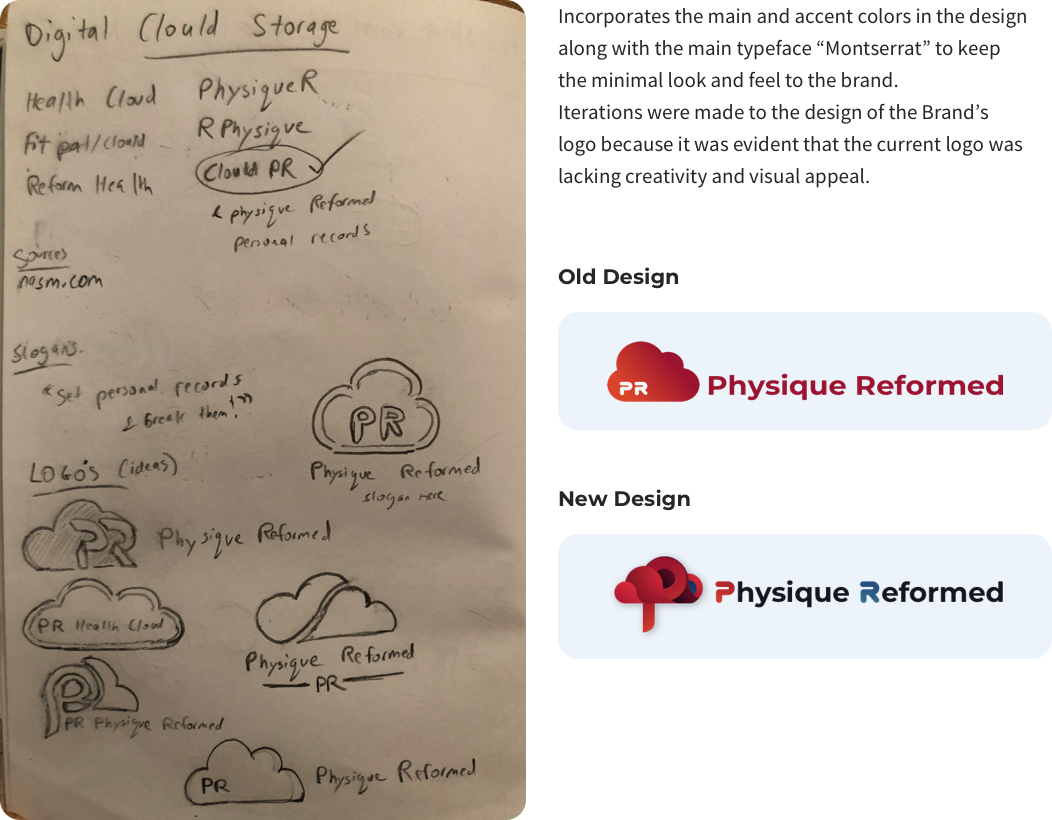 Digital Clould Storage
Health Cloud
Fit pal/Clould
Reform Health
PhysiqueR
R Physique
Clould PR
& physique Reformed
personal records
Sources
nasm.com
Slogans.
"Set personal records
& break them!"
LOGO's (ideas)
PR
Physique Reformed
slogan here
PR Physique Reformed
PR Health Cloud
Physique Reformed
PR
PR Physique Reformed
PR Physique Reformed
Incorporates the main and accent colors in the design
along with the main typeface “Montserrat” to keep
the minimal look and feel to the brand.
Iterations were made to the design of the Brand’s
logo because it was evident that the current logo was
lacking creativity and visual appeal.
Old Design
PR Physique Reformed
New Design
Physique Reformed